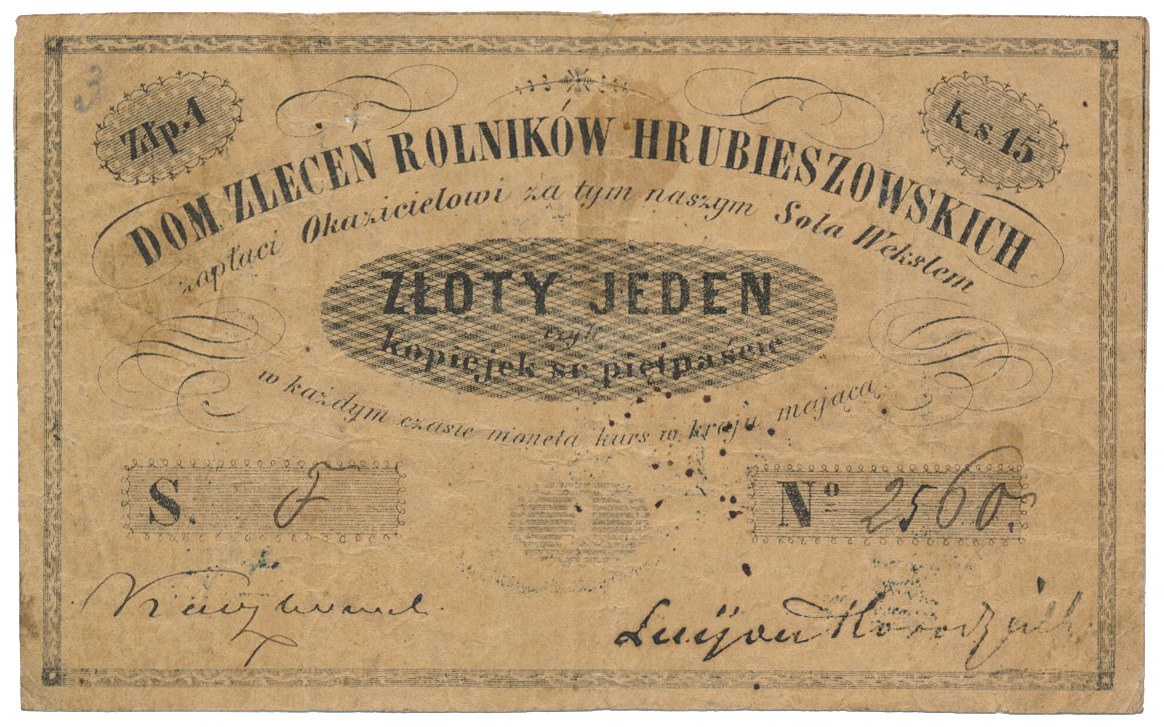 3
Złp. 1
k.s. 15
DOM ZLECEŃ ROLNIKÓW HRUBIESZOWSKICH
zapłaci Okazicielowi za tym naszym Sola Wekslem
ZŁOTY JEDEN
czyli
kopiejek sr. piętnaście
w każdym czasie monetą kurs w kraju mającą
S. F
Nº 2560.